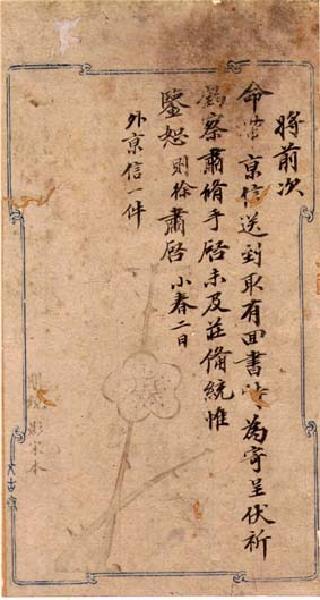 將前次
命帶京信送到取有回書
為寄呈伏祈
察肅脩手啓未及莊備統惟
鑒恕 則徐肅啓 小春二日
外京信一件